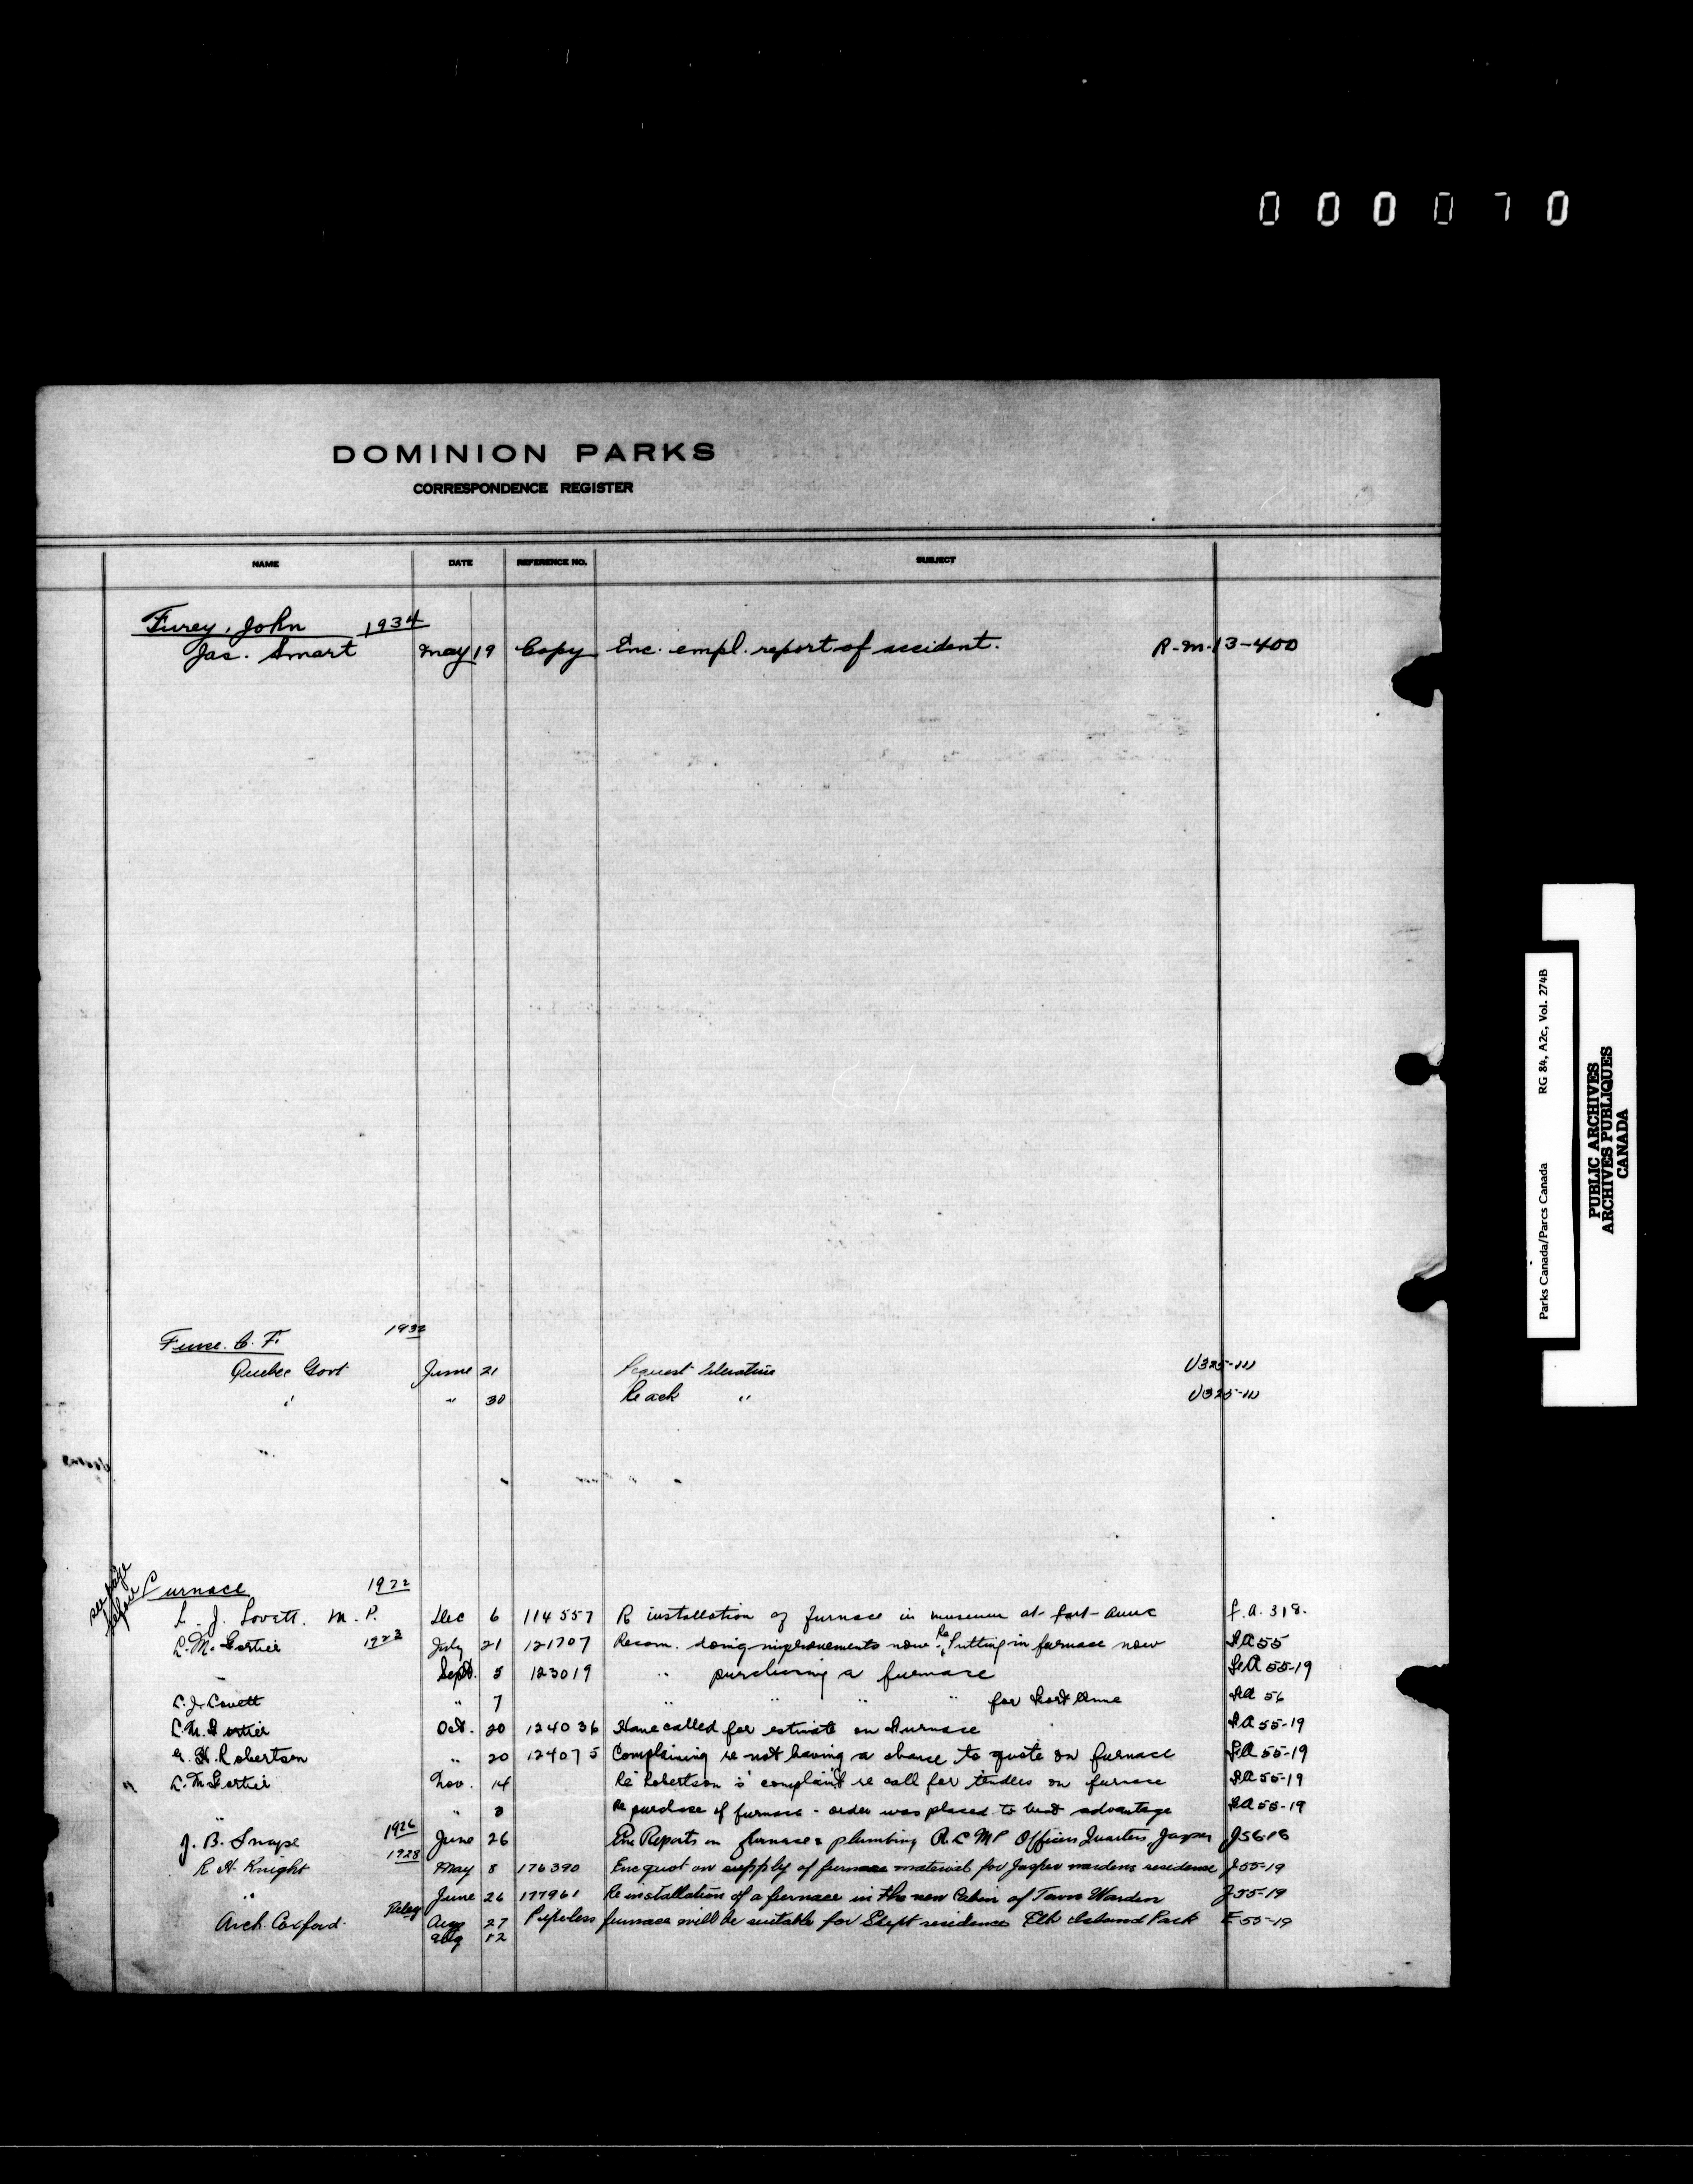 000070
DOMINION PARKS
CORRESPONDENCE REGISTER
NAME DATE REFERENCE NO. SUBJECT
Furey, John 1934
Jas. Smart May 19 Copy Enc. empl. report of accident. R.M. 13-400
C. F. 1932
Quebec Govt June 21 Request literature U325-111
" " 30 Re ack " U325-111
see page before
Furnace 1922
L. J. Lovett. M. P. Dec 6 114557 R installation of furnace in museum at fort Anne F.A. 318.
L. M. Fortier 1923 July 21 121707 Recom. doing improvements now. Re Putting in furnace now FA 55
" Sept. 5 123019 " purchasing a furnace FA 55-19
L. J. Lovett " 7 " " " " for Fort Anne FA 56
L. M. Fortier Oct. 20 124036 Have called for estimate on Furnace FA 55-19
H. Robertson " 20 124075 Complaining re not having a chance to quote on furnace FA 55-19
" L. M. Fortier Nov. 14 Re Robertson's complaint re call for tenders on furnace FA 55-19
" " Re purchase of furnace - order was placed to best advantage FA 55-19
J. B. Snape 1926 June 26 Enc Reports on furnace & plumbing R.C.M.P Officers Quarters, Jasper J56-18
R. H. Knight 1928 May 8 176390 Enc quot on supply of furnace material for Jasper wardens residence J55-19
" June 26 177961 Re installation of a furnace in the new Cabin of Town Warden J55-19
Arch. Coxford. Aug 27 Pipeless furnace will be suitable for Supt residence Elk Island Park E55-19
12
Parks Canada/Parcs Canada RG 84, A2c, Vol. 274B
PUBLIC ARCHIVES
ARCHIVES PUBLIQUES
CANADA